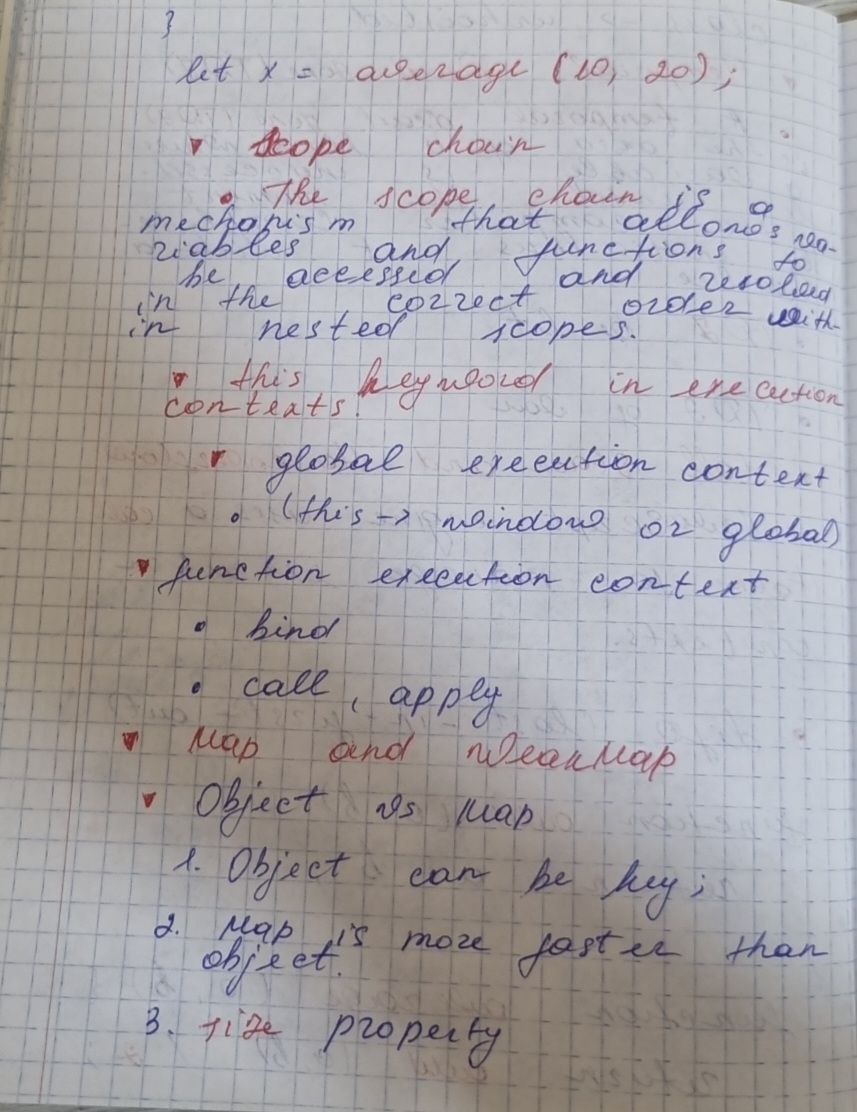 }
let x = average (10, 20);
▾ Scope chain
• The scope chain is a
mechanism that allows va-
riables and functions to
be accessed and resolved
in the correct order with-
in nested scopes.
▾ this keyword in execution
contexts.
▾ global execution context
• (this -> window or global)
▾ function execution context
• bind
• call, apply
▾ Map and WeakMap
▾ Object vs Map
1. Object can be key;
2. Map is more faster than
object.
3. size property